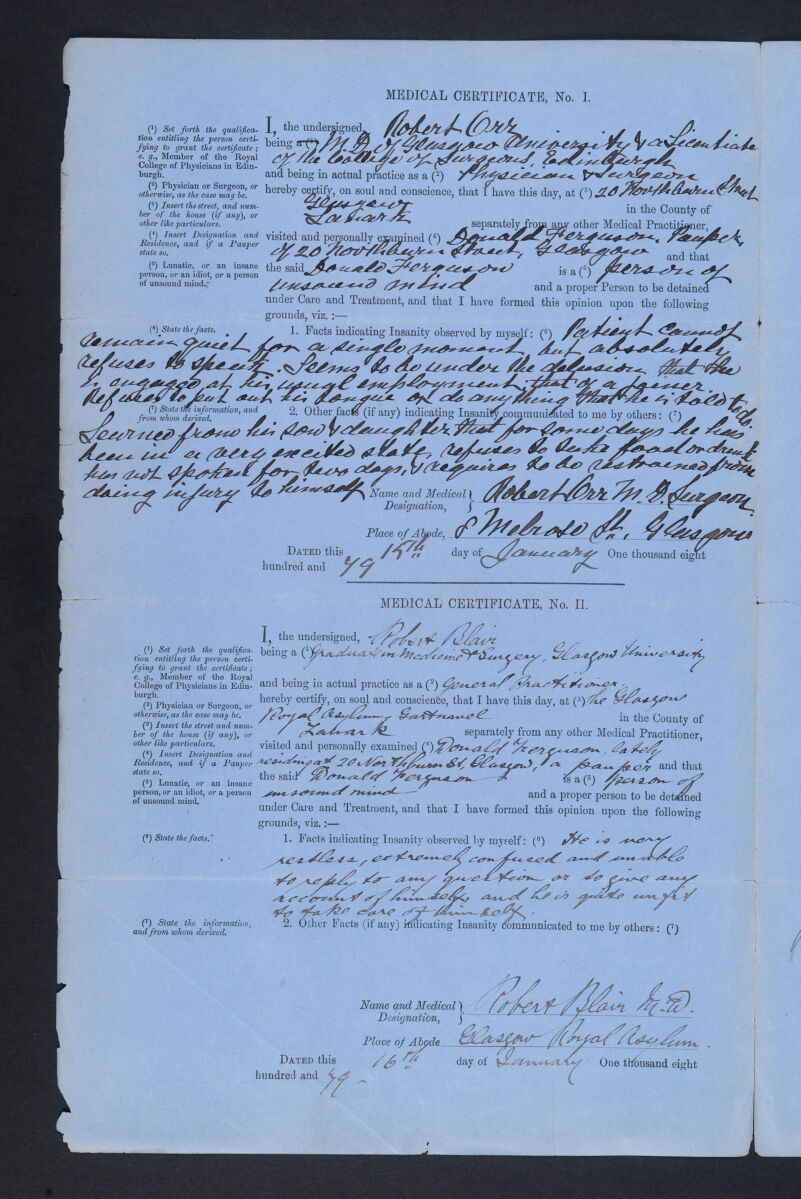 MEDICAL CERTIFICATE, No. I.
(1) Set forth the qualifica-
tion entitling the person certi-
fying to grant the certificate;
e. g., Member of the Royal
College of Physicians in Edin-
burgh.
(2) Physician or Surgeon, or
otherwise, as the case may be.
(3) Insert the street, and num-
ber of the house (if any), or
other like particulars.
(4) Insert Designation and
Residence, and if a Pauper
state so.
(5) Lunatic, or an insane
person, or an idiot, or a person
of unsound mind.
I, the undersigned, Robert Orr
being a (1) M.D. of Glasgow University & a Licentiate
of the College of Surgeons, Edinburgh
and being in actual practice as a (2) Physician & Surgeon
hereby certify, on soul and conscience, that I have this day, at (3) 20 Northburn Street
Glasgow in the County of
Lanark separately from any other Medical Practitioner,
visited and personally examined (4) Donald Ferguson, Pauper,
of 20 Northburn Street, Glasgow and that
the said Donald Ferguson is a (5) person of
unsound mind and a proper Person to be detained
under Care and Treatment, and that I have formed this opinion upon the following
grounds, viz. :—
(6) State the facts.
1. Facts indicating Insanity observed by myself: (6) Patient cannot
remain quiet for a single moment, but absolutely
refuses to speak. Seems to be under the delusion that he
is engaged at his usual employment, that of a joiner.
Refuses to put out his tongue or do anything that he is told to do.
(7) State the information, and
from whom derived.
2. Other facts (if any) indicating Insanity communicated to me by others: (7)
Learned from his son & daughter that for some days he has
been in a very excited state, refuses to take food or drink
has not spoken for two days, & requires to be restrained from
doing injury to himself
Name and Medical Designation, Robert Orr M.D. Surgeon
Place of Abode, 8 Melrose St., Glasgow
DATED this 15th day of January One thousand eight
hundred and 79
MEDICAL CERTIFICATE, No. II.
(1) Set forth the qualifica-
tion entitling the person certi-
fying to grant the certificate;
e. g., Member of the Royal
College of Physicians in Edin-
burgh.
(2) Physician or Surgeon, or
otherwise, as the case may be.
(3) Insert the street and num-
ber of the house (if any), or
other like particulars.
(4) Insert Designation and
Residence, and if a Pauper
state so.
(5) Lunatic, or an insane
person, or an idiot, or a person
of unsound mind.
I, the undersigned, Robert Blair
being a (1) Graduate in Medicine & Surgery, Glasgow University
and being in actual practice as a (2) General Practitioner
hereby certify, on soul and conscience, that I have this day, at (3) the Glasgow
Royal Asylum, Gartnavel in the County of
Lanark separately from any other Medical Practitioner,
visited and personally examined (4) Donald Ferguson, lately
residing at 20 Northburn St. Glasgow, a pauper and that
the said Donald Ferguson is a (5) person of
unsound mind and a proper person to be detained
under Care and Treatment, and that I have formed this opinion upon the following
grounds, viz. :—
(6) State the facts.
1. Facts indicating Insanity observed by myself: (6) He is very
restless, extremely confused and unable
to reply to any question or to give any
account of himself, and he is quite unfit
to take care of himself.
(7) State the information,
and from whom derived.
2. Other Facts (if any) indicating Insanity communicated to me by others: (7)
Name and Medical Designation, Robert Blair M.D.
Place of Abode Glasgow Royal Asylum.
DATED this 16th day of January One thousand eight
hundred and 79